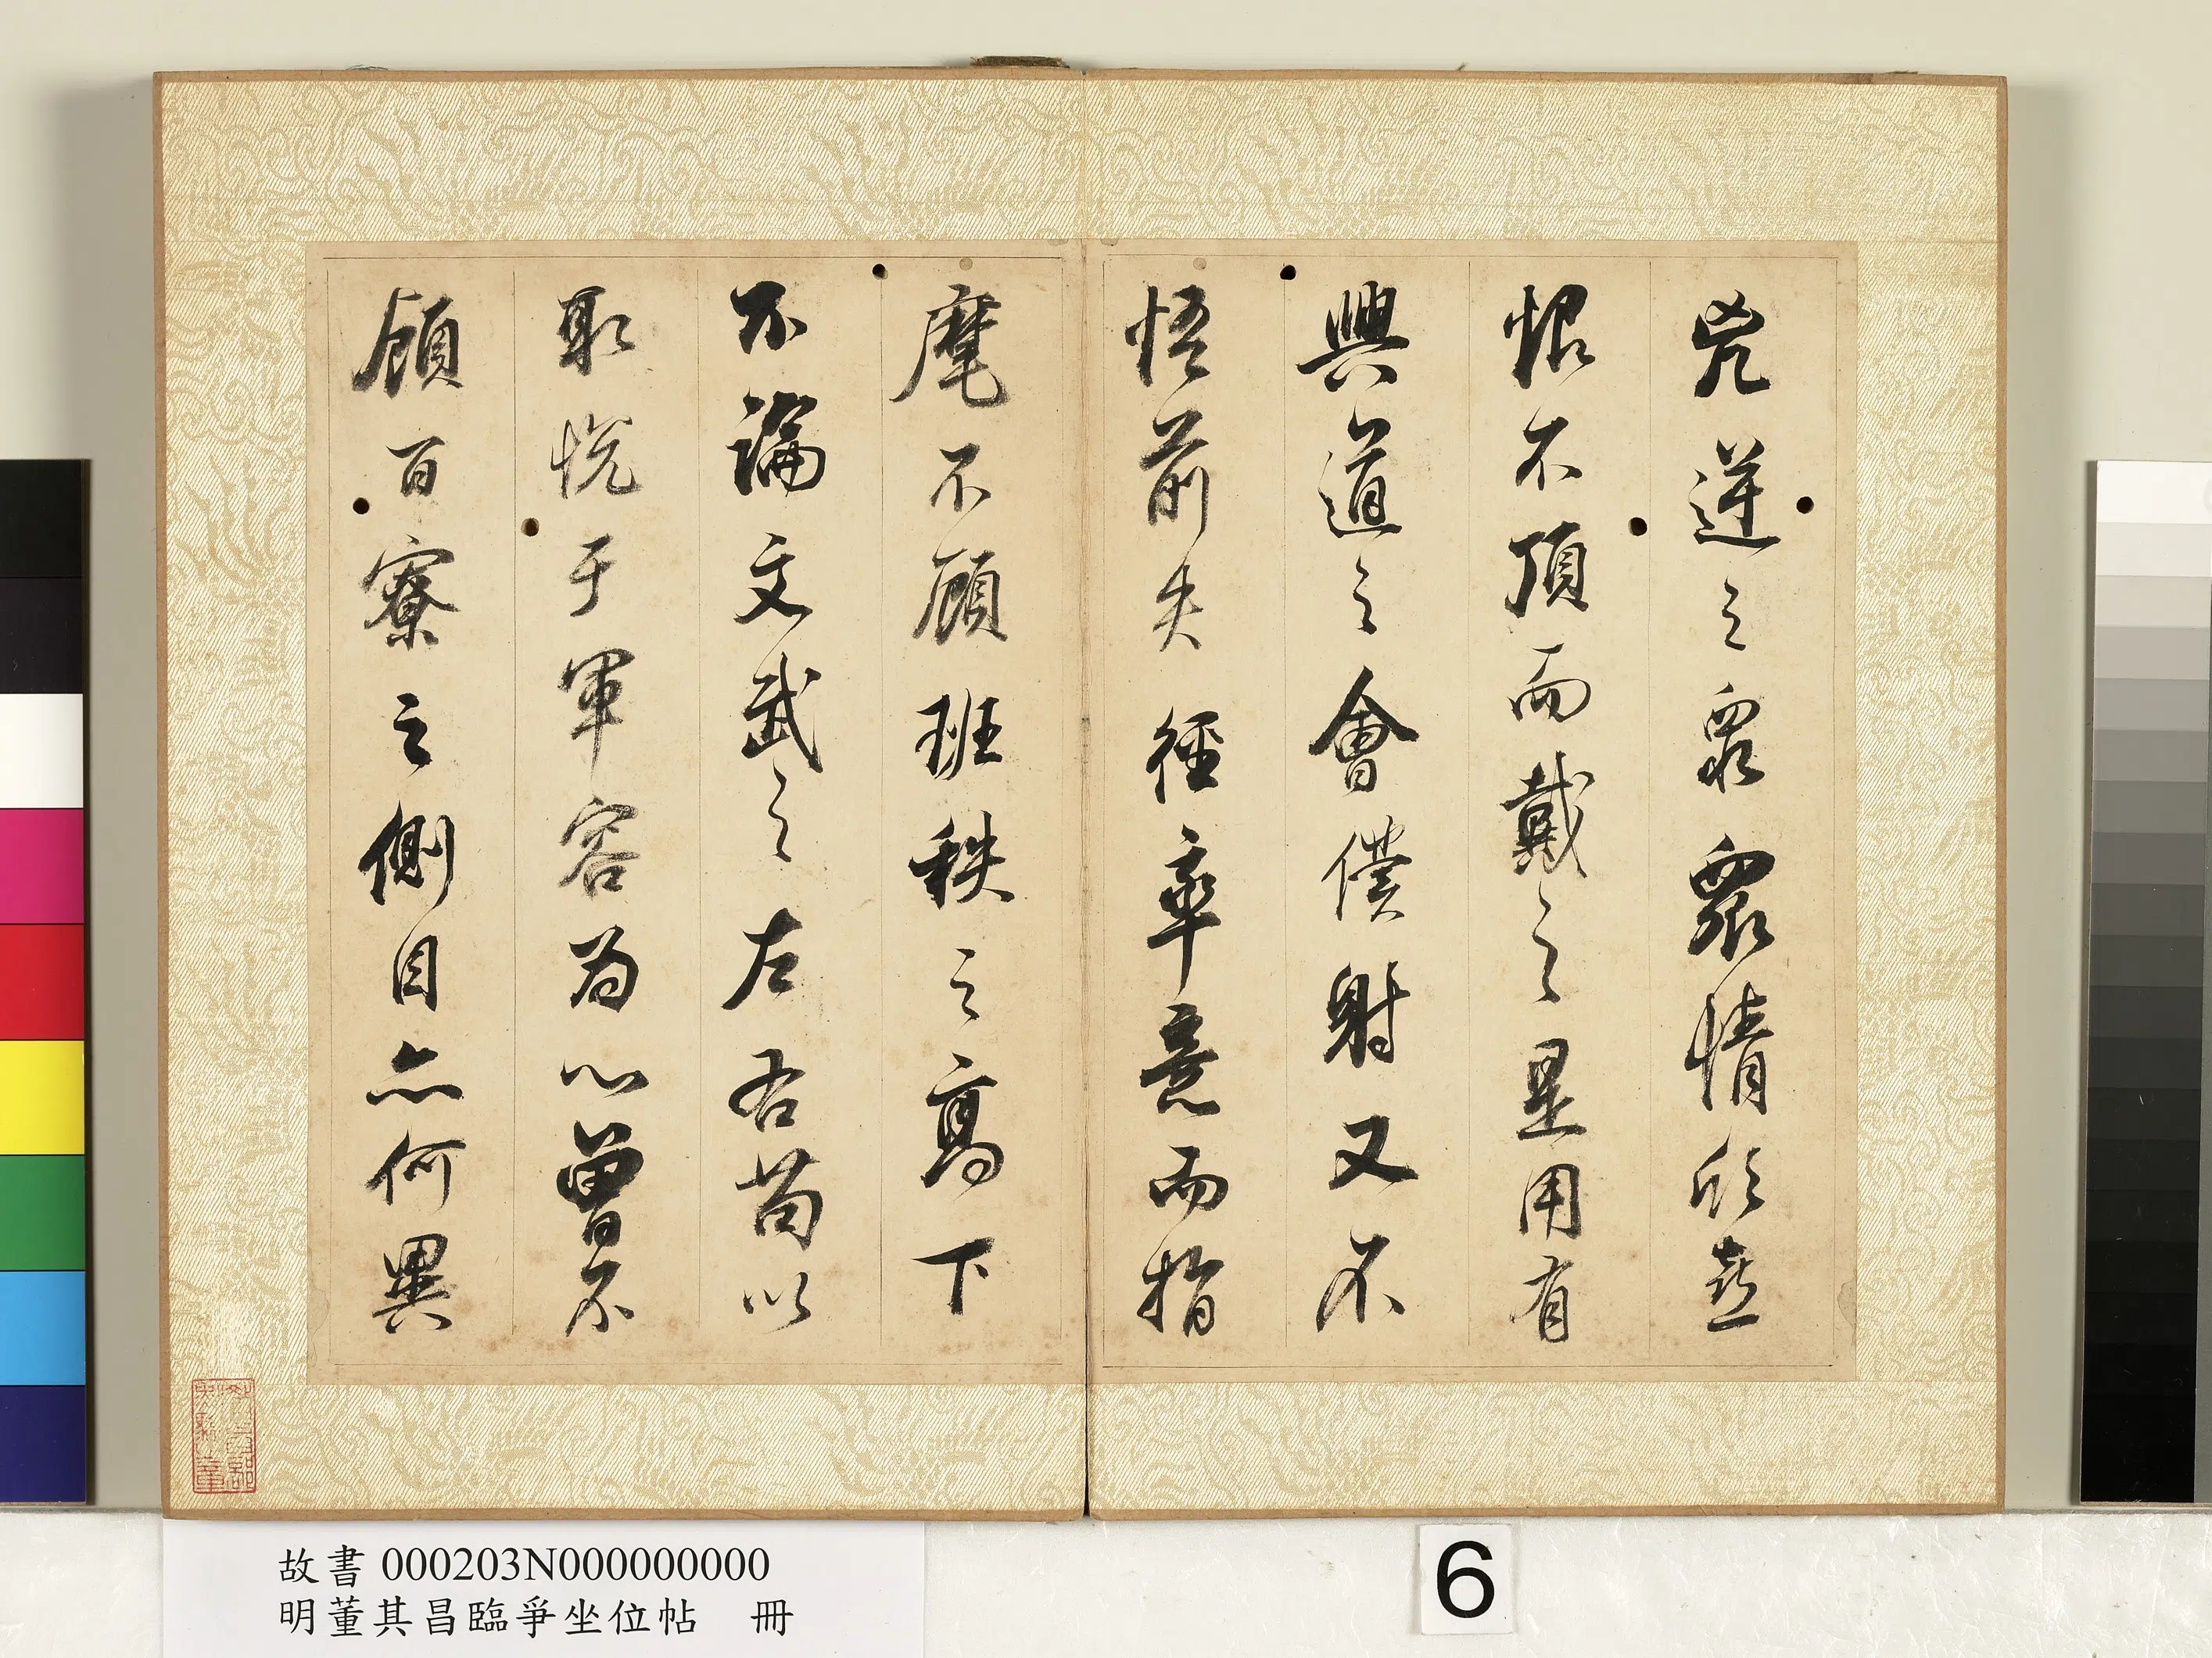 兇逆之眾眾情欣喜
恨不頂而戴之是用有
興道之會僕射又不
悟前失徑率意而指
麾不顧班秩之高下
不論文武之左右苟以
取悅于軍容為心曾不
顧百寮之側目亦何異
故書 000203N000000000
明董其昌臨爭坐位帖 冊
6